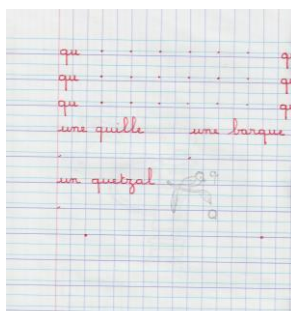 qu . . . . . . . q
qu . . . . . . . q
qu . . . . . . . q
une quille une barque
un quetzal